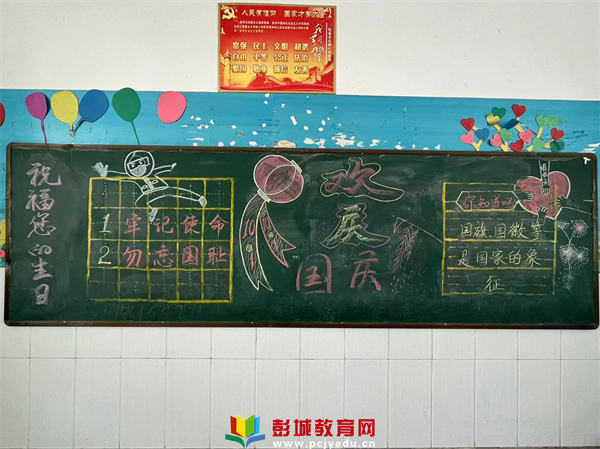 人民有信仰 国家才有力量
富强 民主 文明 和谐
自由 平等 公正 法治
爱国 敬业 诚信 友善
祝福您的生日
1 牢记使命
2 勿忘国耻
10 1
欢
度
国庆
你知道吗
国旗,国徽等
是国家的象
征
彭城教育网
www.pcjyedu.cn